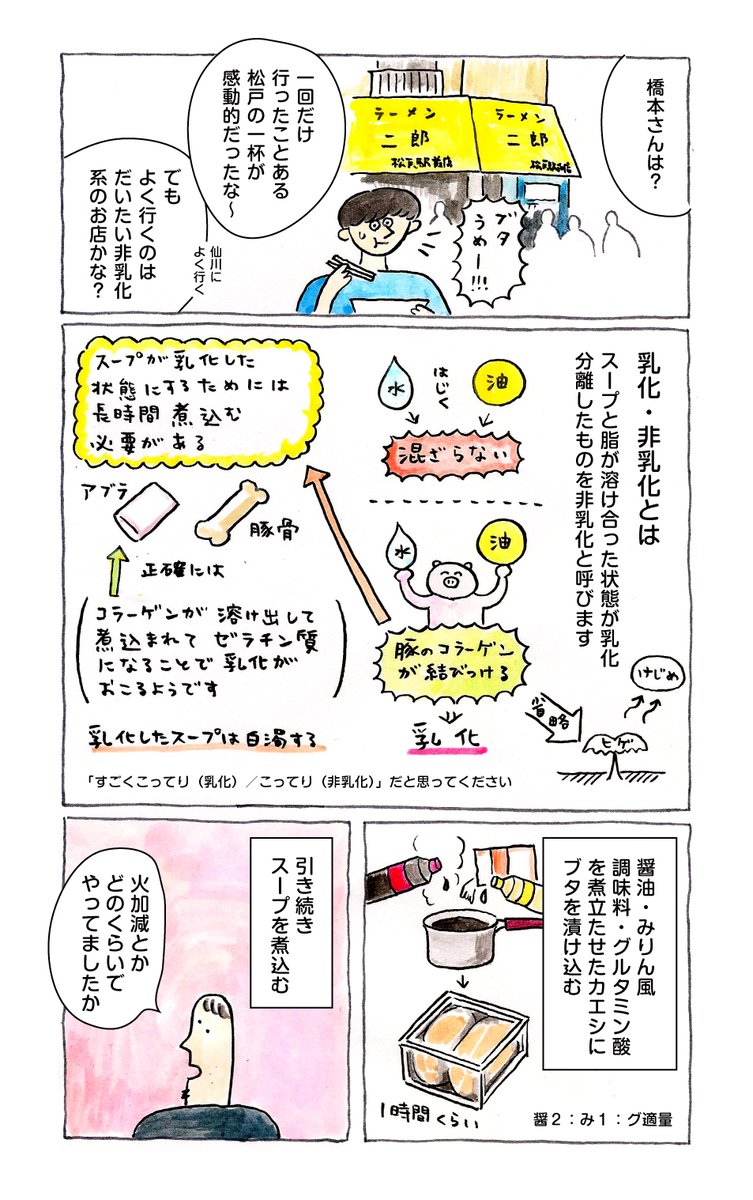 橋本さんは？
ラーメン
二郎
松戸駅前店
ラーメン
二郎
松戸駅前店
一回だけ
行ったことある
松戸の一杯が
感動的だったな〜
ブタ
うめー!!!
でも
よく行くのは
だいたい非乳化
系のお店かな？
仙川に
よく行く
乳化・非乳化とは
スープと脂が溶け合った状態が乳化
分離したものを非乳化と呼びます
水
はじく
油
混ざらない
水
油
豚のコラーゲン
が結びつける
乳化
スープが乳化した
状態にするためには
長時間煮込む
必要がある
アブラ
豚骨
正確には
コラーゲンが溶け出して
煮込まれてゼラチン質
になることで乳化が
おこるようです
乳化したスープは白濁する
省略
ヒゲ
けじめ
「すごくこってり（乳化）／こってり（非乳化）」だと思ってください
醤油・みりん風
調味料・グルタミン酸
を煮立たせたカエシに
ブタを漬け込む
1時間くらい
醤2：み1：グ適量
引き続き
スープを煮込む
火加減とか
どのくらいで
やってましたか